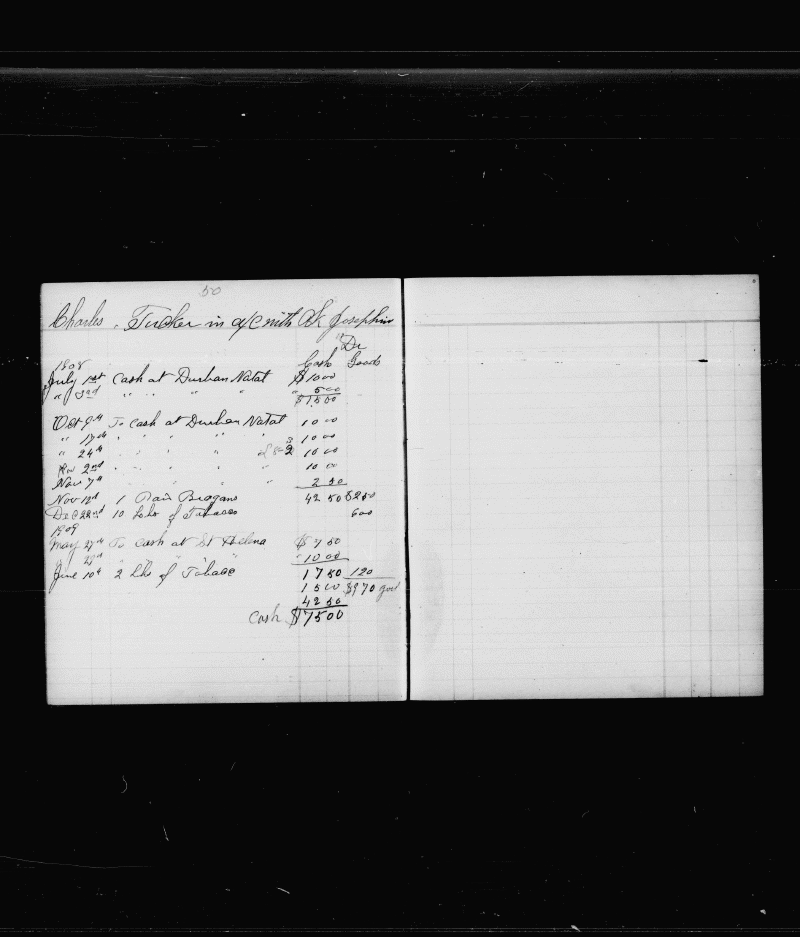 50
Charles Tucker in a/c with Bk Josephine
Dr
1908 Cash Goods
July 1st Cash at Durban Natal $ 10 00
" 3rd " " " " " 5 00
$ 15 00
Oct 9th To Cash at Durban Natal 10 00
" 17th " " " " " 10 00
" 24th " " " " 10 00
Nov 2nd " " " " " 10 00
Nov 7th " " " " 2 50
Nov 12th 1 Pair Brogans 42 50 $2 50
Dec 22nd 10 Lbs of Tobacco 6 00
1909
May 27th To Cash at St Helena $ 7 50
" " " " " 10 00
June 10th 2 Lbs of Tobacc 17 50 1 20
15 00 $9 70
42 50
Cash $ 75 00